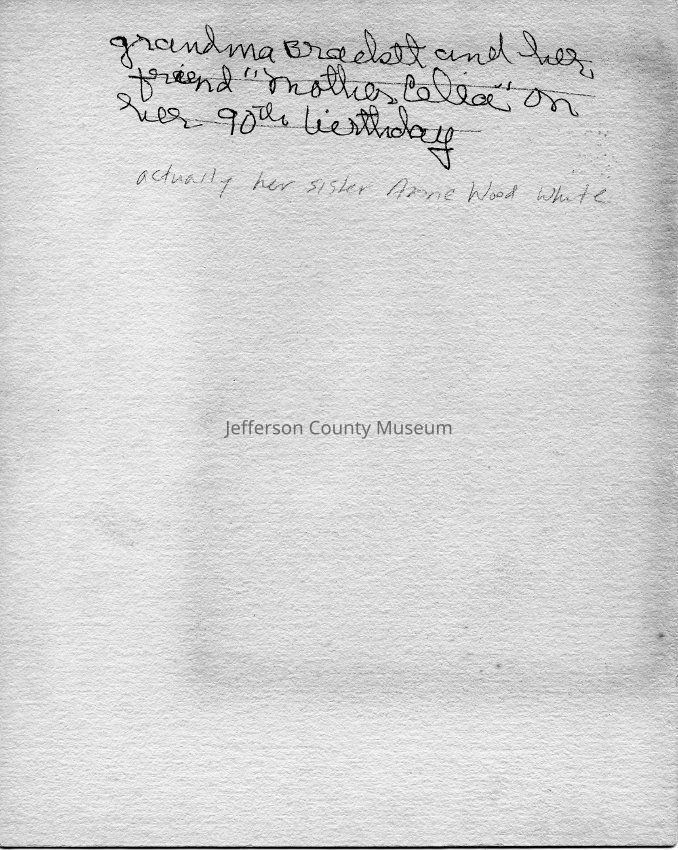 grandma Brackett and her
friend "Mother Celia" on
her 90th birthday
actually her sister Anne Wood White
Jefferson County Museum